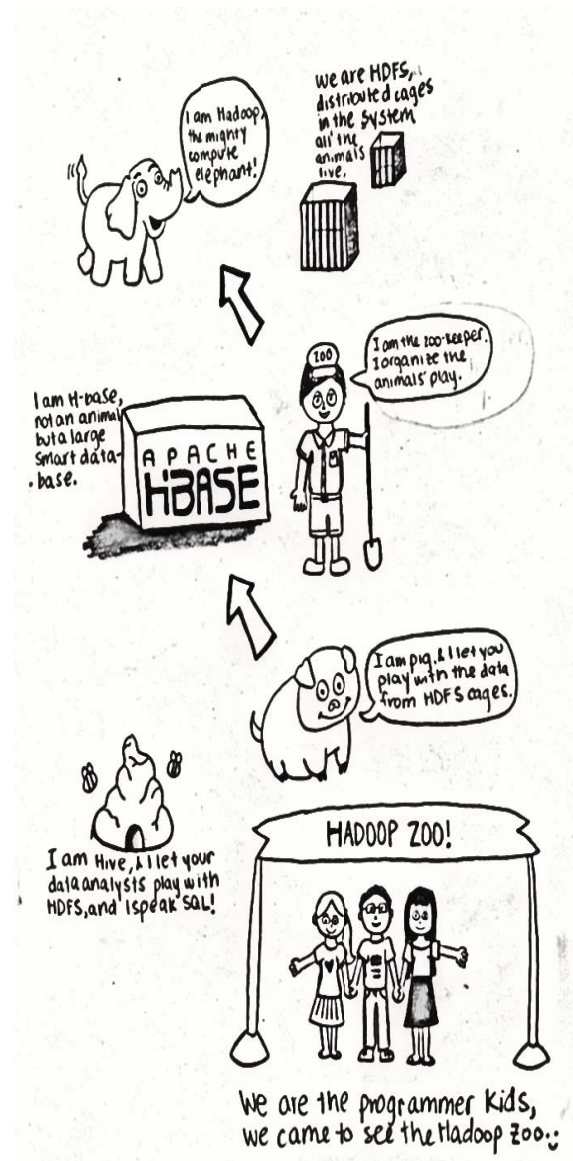 I am Hadoop,
the mighty
compute
elephant!
We are HDFS,
distributed cages
in the system
all the
animals
live.
I am the zoo-keeper.
I organize the
animals' play.
ZOO
I am H-base,
not an animal
but a large
smart data-
base.
APACHE
HBASE
I am pig, & I let you
play with the data
from HDFS cages.
I am Hive, & I let your
data analysts play with
HDFS, and I speak SQL!
HADOOP ZOO!
We are the programmer kids,
we came to see the Hadoop Zoo:;